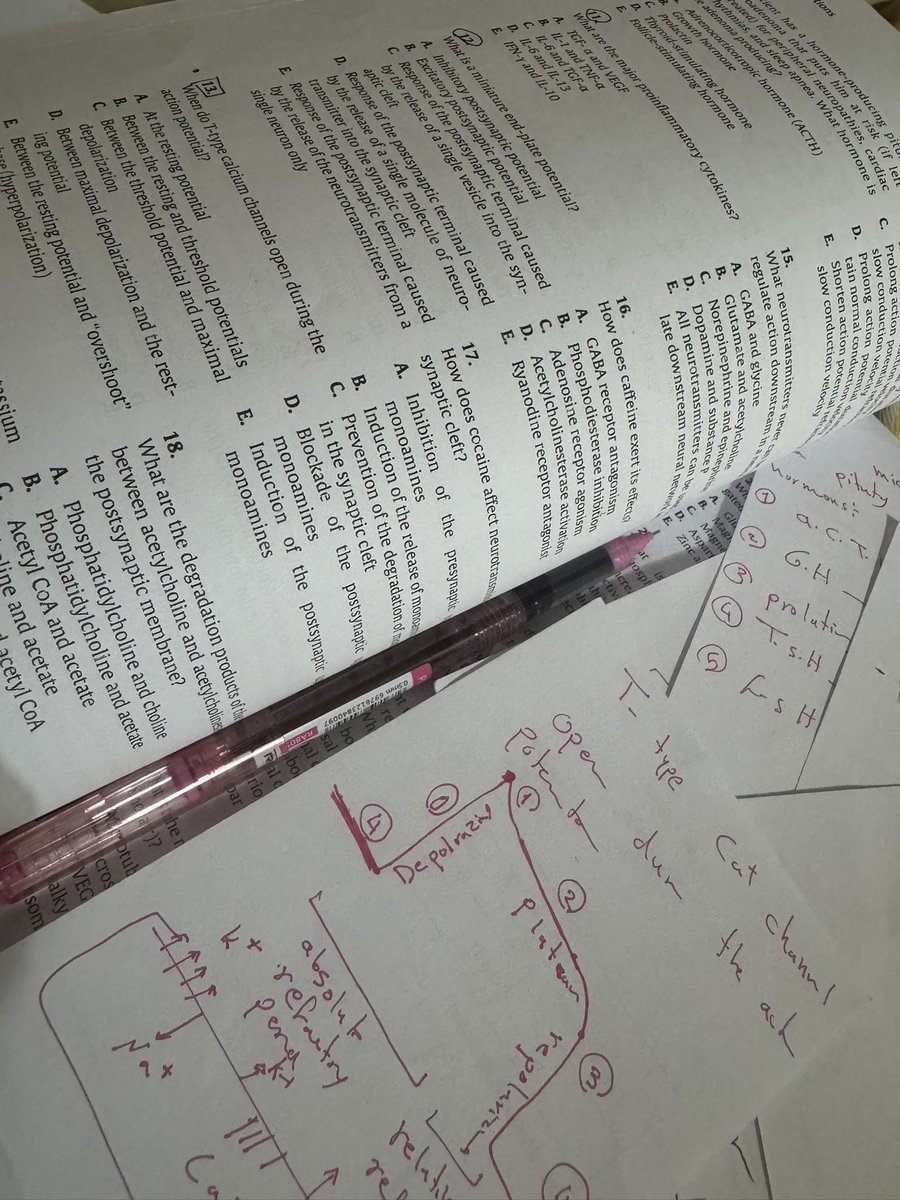 tions
ient has a hormone-producing pitu
adenoma that puts him at risk (if left
treated) for peripheral neuropathies, cardiac
rhythmias, and sleep apnea. What hormone is
e adenoma producing?
A. Adrenocorticotropic hormone (ACTH)
B. Growth hormone
C. Prolactin
D. Thyroid-stimulating hormone
E. Follicle-stimulating hormone
11.
What are the major proinflammatory cytokines?
A. TGF-α and VEGF
B. IL-1 and TNF-α
C. IL-6 and TGF-α
D. IL-6 and IL-13
E. IFN-γ and IL-10
12.
What is a miniature end-plate potential?
A. Inhibitory postsynaptic potential
B. Excitatory postsynaptic potential
C. Response of the postsynaptic terminal caused
by the release of a single vesicle into the syn-
aptic cleft
D. Response of the postsynaptic terminal caused
by the release of a single molecule of neuro-
transmitter into the synaptic cleft
E. Response of the postsynaptic terminal caused
by the release of the neurotransmitters from a
single neuron only
13.
When do T-type calcium channels open during the
action potential?
A. At the resting potential
B. Between the resting and threshold potentials
C. Between the threshold potential and maximal
depolarization
D. Between maximal depolarization and the rest-
ing potential
E. Between the resting potential and “overshoot”
(hyperpolarization)
C. Prolong action poten
slow conduction velo
D. Prolong action potential
tain normal conduction
E. Shorten action potential
slow conduction velocity
15.
What neurotransmitters never
regulate action downstream in a
A. GABA and glycine
B. Glutamate and acetylcholine
C. Norepinephrine and epineph
D. Dopamine and substance P
E. All neurotransmitters can
late downstream neural
16.
How does caffeine exert its effects
A. GABA receptor antagonism
B. Phosphodiesterase inhibition
C. Adenosine receptor agonism
D. Acetylcholinesterase activation
E. Ryanodine receptor antagonis
17.
How does cocaine affect neurotransm
synaptic cleft?
A. Inhibition of the presynaptic
monoamines
B. Induction of the release of monoam
C. Prevention of the degradation of
in the synaptic cleft
D. Blockade of the postsynaptic
monoamines
E. Induction of the postsynaptic
monoamines
18.
What are the degradation products of the
between acetylcholine and acetylcholines
the postsynaptic membrane?
A. Phosphatidylcholine and choline
B. Phosphatidylcholine and acetate
C. Acetyl CoA and acetate
oline and acetate
d acetyl CoA
tassium
0.5mm 6976123840097
Pituty
hormons:
① A.C.T.
② G.H
③ prolatin
④ T.S.H
⑤ L S H
T- type Cat channel
Open dur the act
Potenta
④
0
Depolrazin
①
②
plateau
③
repolarizen
absolute
refractory
period
K+
K+
Na+
Ca